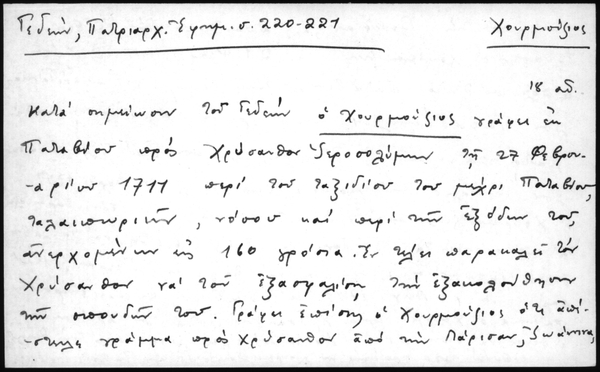 Γεδεών, Πατριαρχ. Ἐφημ. σ. 220-221 Χουρμούζιος
18 αἰ.
Κατά σημείωσιν τοῦ Γεδεών ὁ Χουρμούζιος γράφει ἐκ
Παταβίου πρός Χρύσανθον Ἱεροσολύμων τῇ 27 Φεβρου-
-αρίου 1711 περί τοῦ ταξιδίου του μέχρι Παταβίου,
ταλαιπωριῶν, νόσου καί περί τῶν ἐξόδων του,
ἀνερχομένων εἰς 160 γρόσια. Ἐν τέλει παρακαλεῖ τόν
Χρύσανθον νά τοῦ ἐξασφαλίσῃ τήν ἐξακολούθησιν
τῶν σπουδῶν του. Γράφει ἐπίσης ὁ Χουρμούζιος ὅτι ἀπέ-
-στειλε γράμμα πρός Χρύσανθον ἀπό τήν Λάρισαν, Ἰωάννινα,